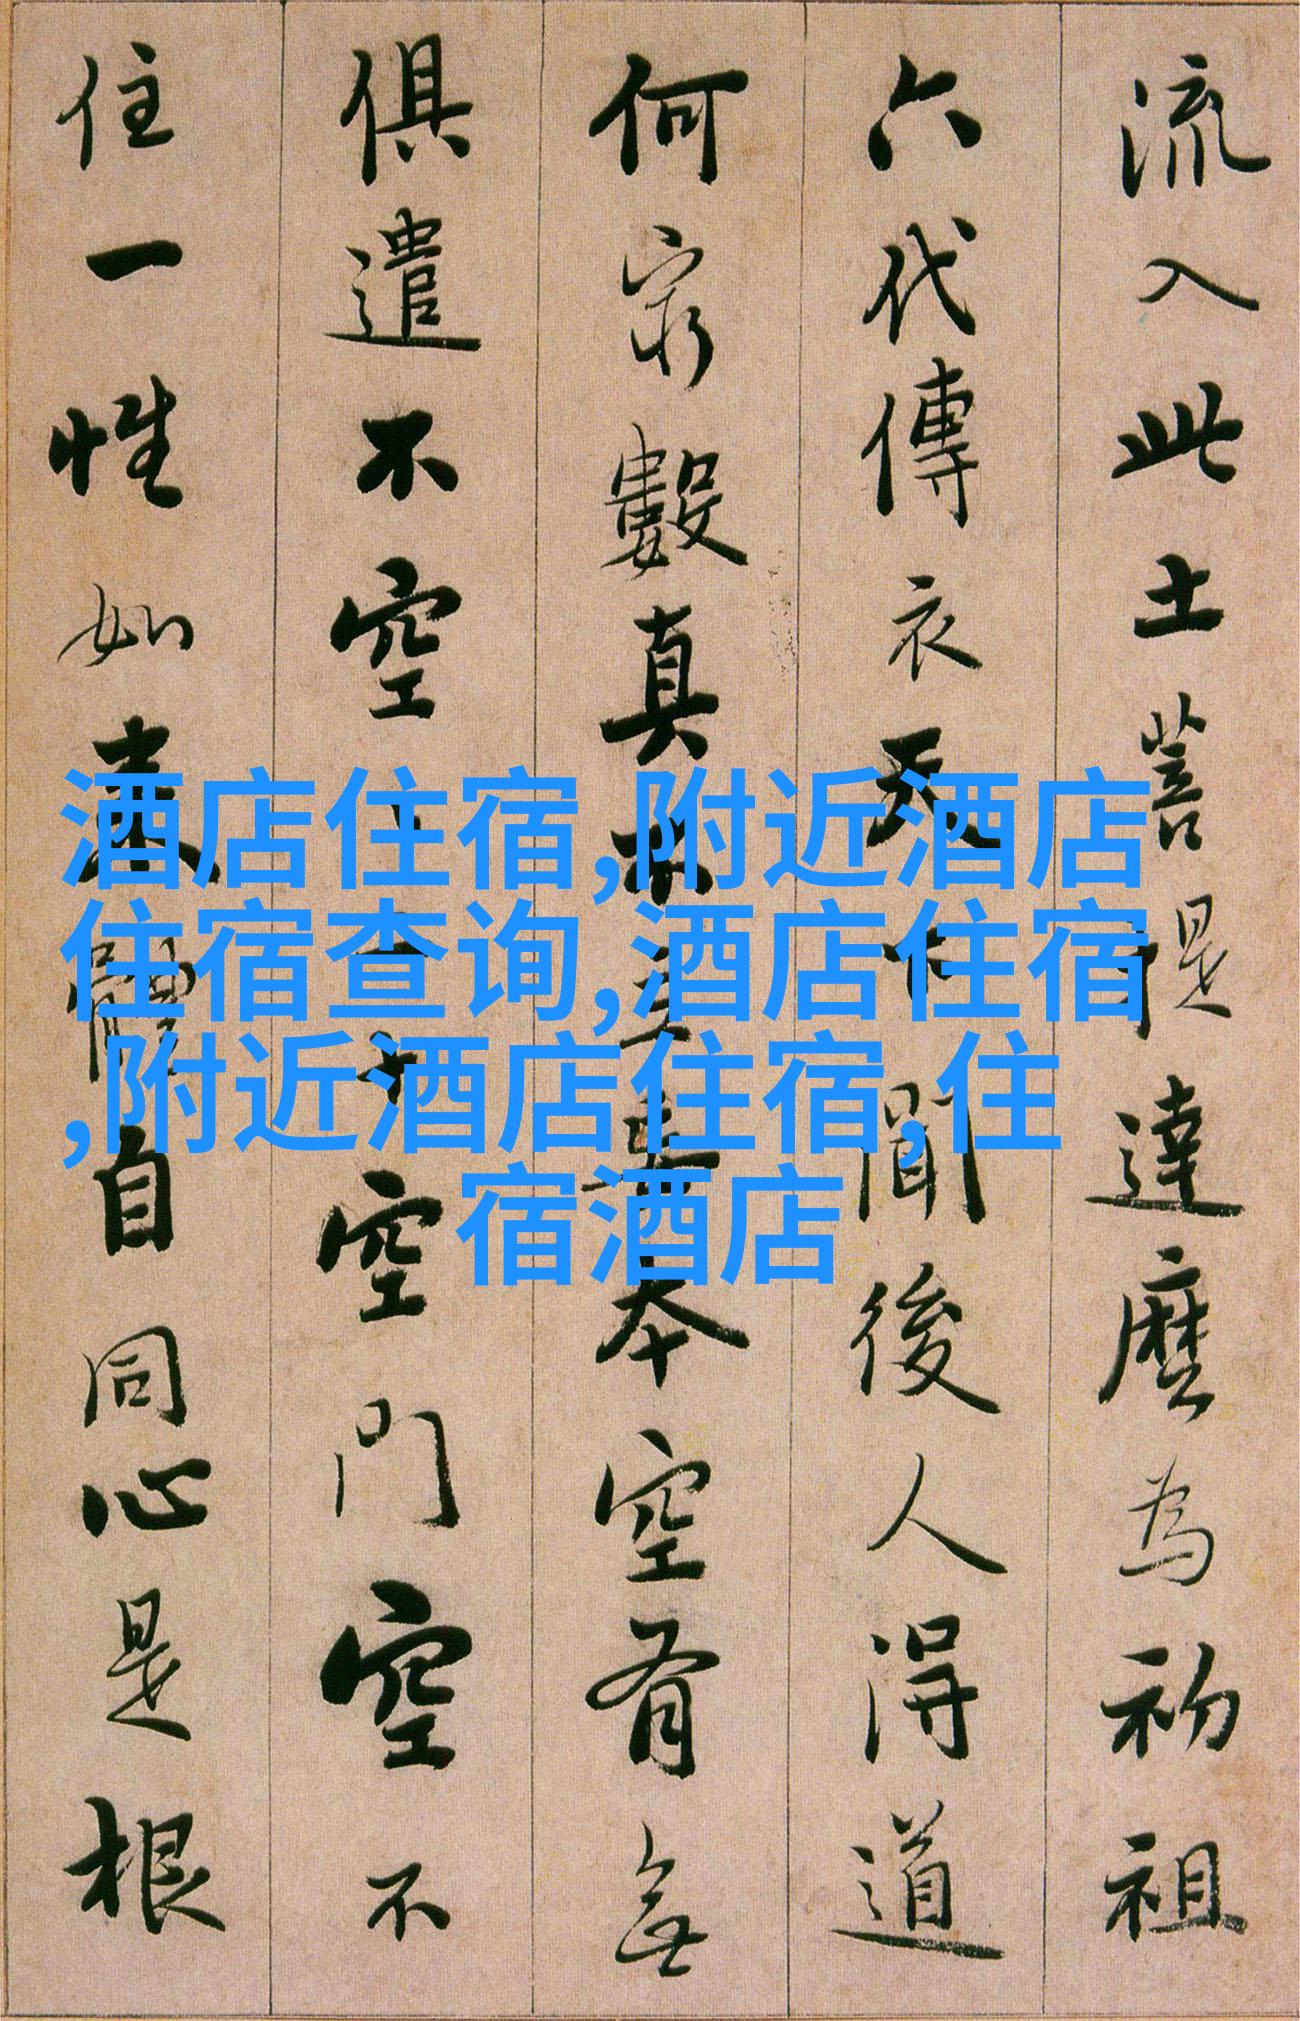 流入此土菩提達麼為初祖
六代傳衣天下聞後人得道
何窮數真不立妄本空有無
俱遣不空二十空門空不
住一性如來體自同心是根
酒店住宿,附近酒店
住宿查询,酒店住宿
,附近酒店住宿,住
宿酒店